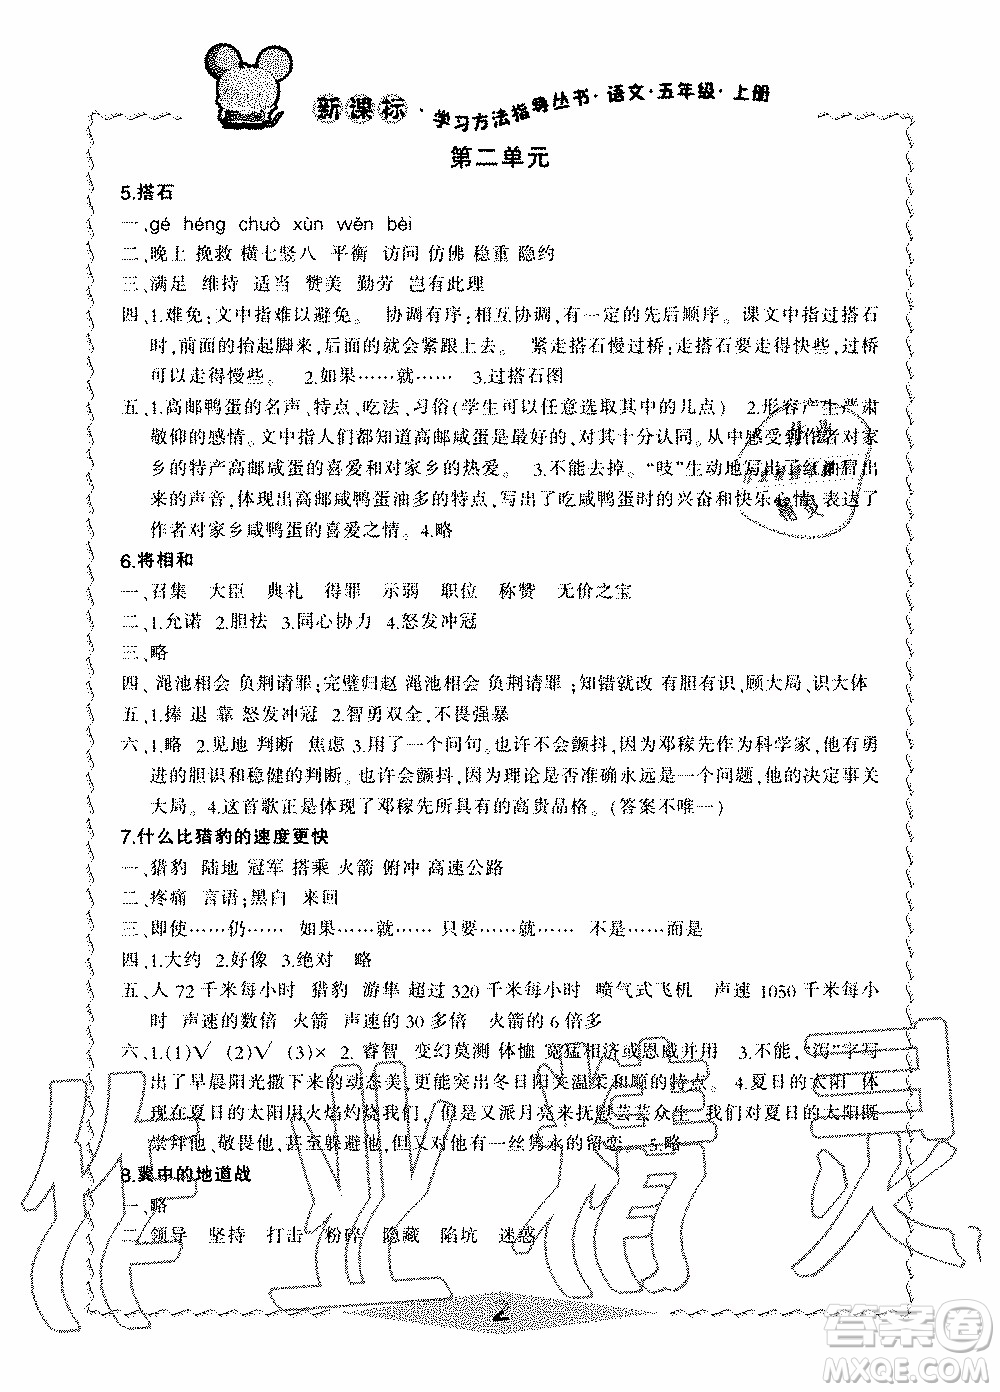 新课标·学习方法指导丛书·语文·五年级·上册
第二单元
5.搭石
一、gé héng chuò xùn wěn bèi
二、晚上 挽救 横七竖八 平衡 访问 仿佛 稳重 隐约
三、满足 维持 适当 赞美 勤劳 岂有此理
四、1.难免：文中指难以避免。 协调有序：相互协调，有一定的先后顺序。课文中指过搭石
时，前面的抬起脚来，后面的就会紧跟上去。 紧走搭石慢过桥：走搭石要走快些，过桥
可以走得慢些。 2.如果……就…… 3.过搭石图
五、1.高邮鸭蛋的名声、特点、吃法、习俗（学生可以任意选取其中的几点） 2.形容产生严肃
敬仰的感情。文中指人们都知道高邮咸蛋是最好的，对其十分认同。从中感受到作者对家
乡的特产高邮咸蛋的喜爱和对家乡的热爱。 3.不能去掉。“吱”生动地写出了红油冒出
来的声音，体现出高邮咸鸭蛋油多的特点，写出了吃咸鸭蛋时的兴奋和快乐心情，表达了
作者对家乡咸鸭蛋的喜爱之情。4.略
6.将相和
一、召集 大臣 典礼 得罪 示弱 职位 称赞 无价之宝
二、1.允诺 2.胆怯 3.同心协力 4.怒发冲冠
三、略
四、渑池相会 负荆请罪；完璧归赵 渑池相会 负荆请罪；知错就改 有胆有识，顾大局、识大体
五、1.捧 退 靠 怒发冲冠 2.智勇双全，不畏强暴
六、1.略 2.见地 判断 焦虑 3.用了一个问句。也许不会颤抖，因为邓稼先作为科学家，他有勇
进的胆识和稳健的判断。也许会颤抖，因为理论是否准确永远是一个问题，他的决定事关
大局。4.这首歌正是体现了邓稼先所具有的高贵品格。（答案不唯一）
7.什么比猎豹的速度更快
一、猎豹 陆地 冠军 搭乘 火箭 俯冲 高速公路
二、疼痛 言语；黑白 来回
三、即使……仍…… 如果……就…… 只要……就…… 不是……而是
四、1.大约 2.好像 3.绝对 略
五、人 72 千米每小时 猎豹 游隼 超过 320 千米每小时 喷气式飞机 声速 1050 千米每小
时 声速的数倍 火箭 声速的 30 多倍 火箭的 6 倍多
六、1.(1)√ (2)√ (3)× 2. 睿智 变幻莫测 体恤 宽猛相济或恩威并用 3.不能，“泻”字写
出了早晨阳光撒下来的动态美，更能体现出冬日阳关温柔和顺的特点。 4.夏日的太阳 体
现在夏日的太阳用火焰灼烧我们，但是又派月亮来抚慰芸芸众生 我们对夏日的太阳既
崇拜他、敬畏他，甚至躲避他，但又对他有一丝隽永的留恋 5.略
8.冀中的地道战
一、略
二、领导 坚持 打击 粉碎 隐藏 陷坑 迷惑
2
作业精灵
答案卷
MXQE.COM